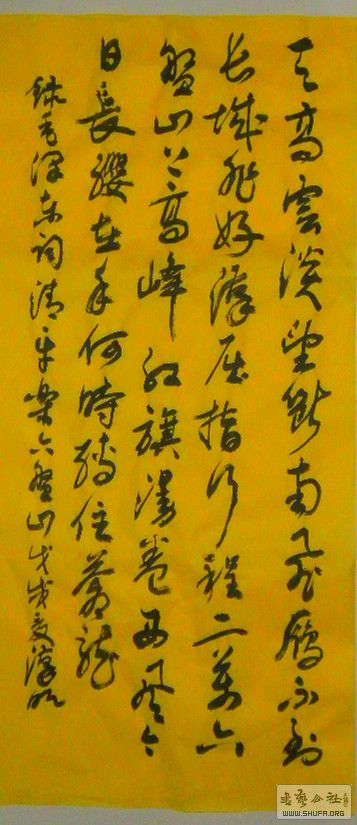 天高雲淡望斷南飛雁不到
长城非好漢屈指行程二萬六
盤山上高峰红旗漫卷西风今
日長纓在手何時缚住蒼龍
錄毛泽东词清平樂六盤山戊戌夏
書藝公社
WWW.SHUFA.ORG